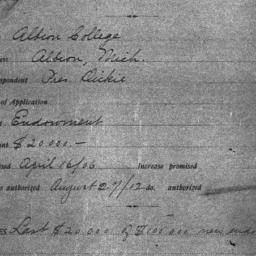 Albion College
Albion, Mich.
pondent Pres Dickie
of Application
Endowment
nt $20.000.—
sed April 16/06 Increase promised
s authorized August 27/12 do. authorized
s Last $20.000 of $100.000 new endo